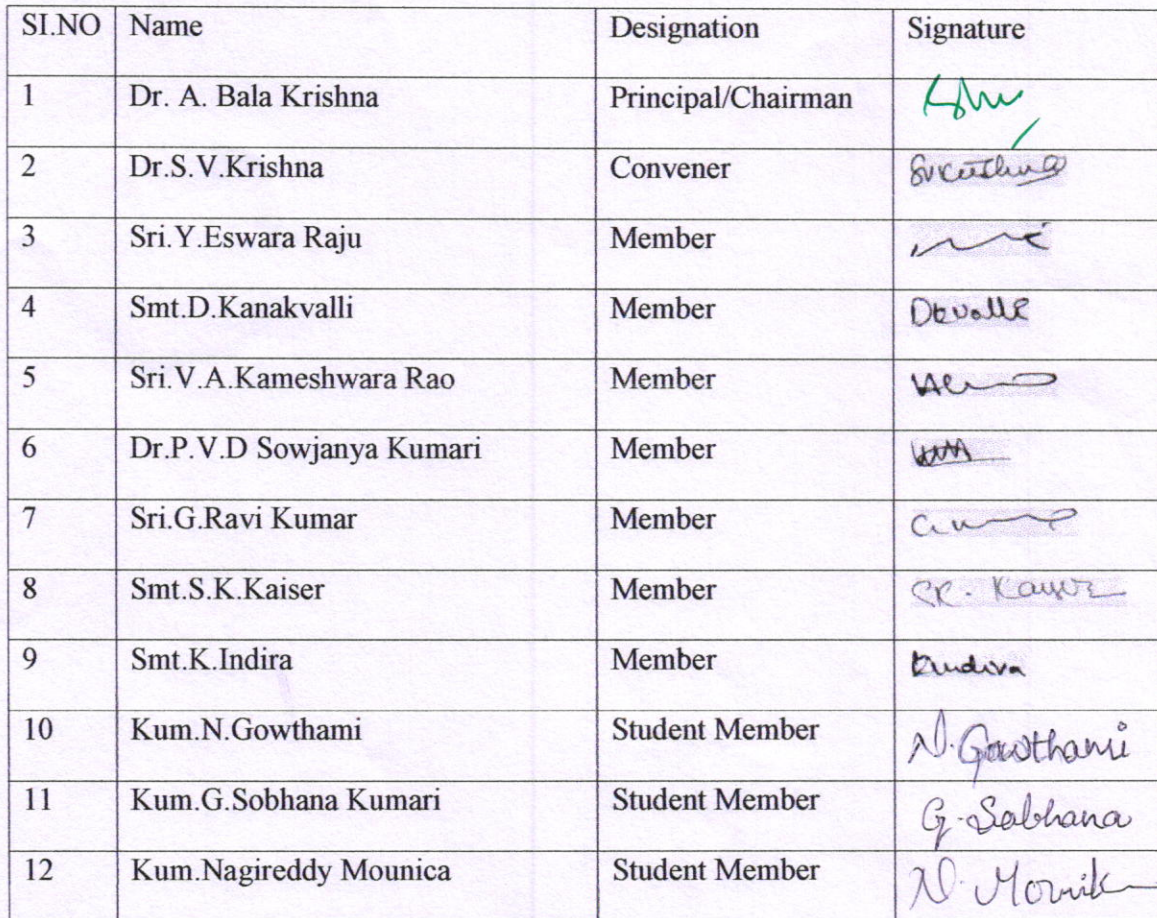 SI.NO Name Designation Signature
1 Dr. A. Bala Krishna Principal/Chairman
2 Dr.S.V.Krishna Convener
3 Sri.Y.Eswara Raju Member
4 Smt.D.Kanakvalli Member
5 Sri.V.A.Kameshwara Rao Member
6 Dr.P.V.D Sowjanya Kumari Member
7 Sri.G.Ravi Kumar Member
8 Smt.S.K.Kaiser Member
9 Smt.K.Indira Member
10 Kum.N.Gowthami Student Member N. Gowthami
11 Kum.G.Sobhana Kumari Student Member G. Sobhana
12 Kum.Nagireddy Mounica Student Member